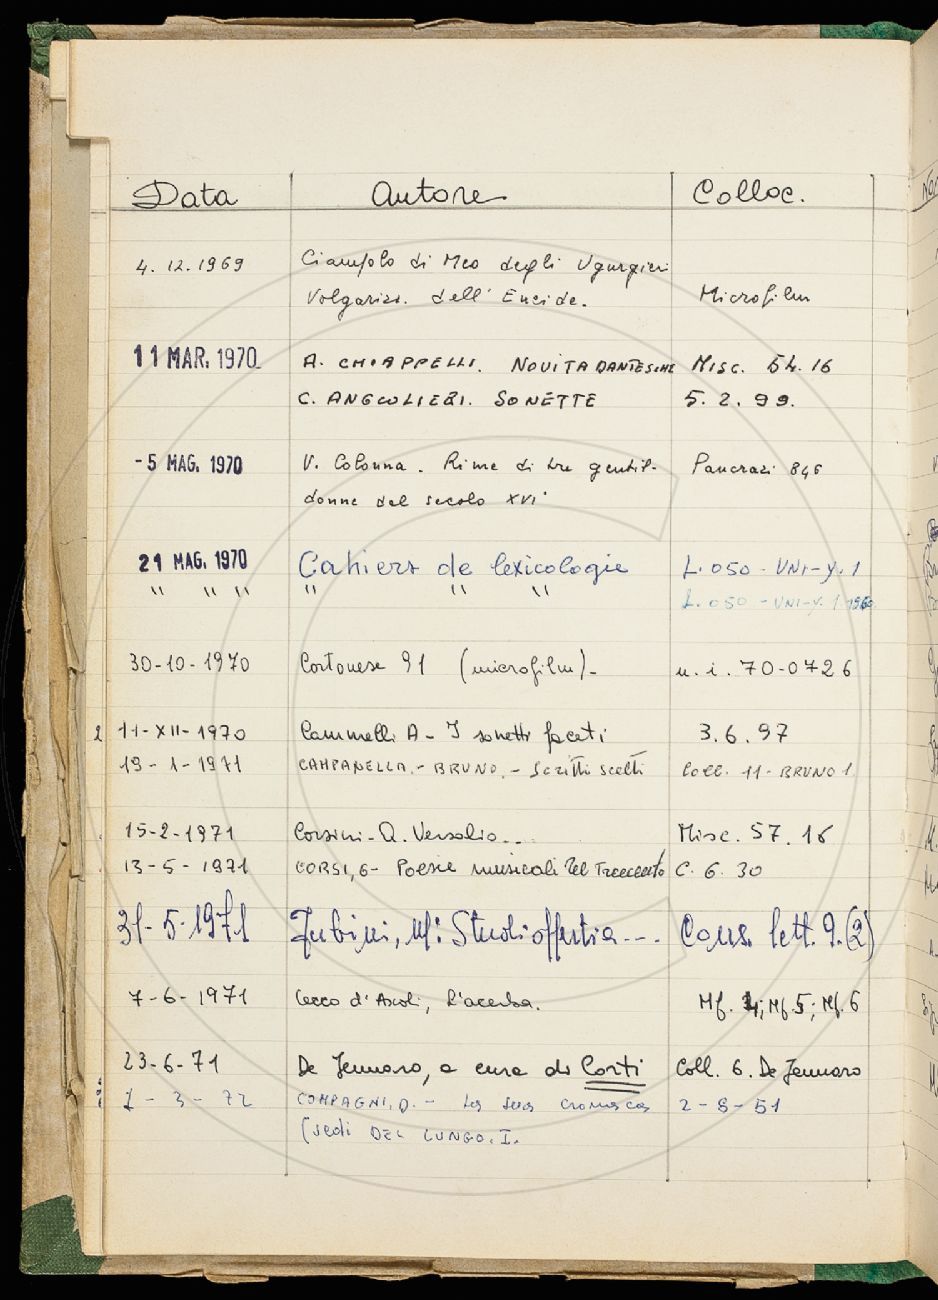 Data Autore Colloc.
4. 12. 1969 Ciampolo di Meo degli Ugurgieri
Volgarizz. dell' Eneide. Microfilm
11 MAR. 1970 A. CHIAPPELLI. NOVITA DANTESCHE MISC. 54. 16
C. ANGIOLIERI. SONETTE 5. 2. 99.
-5 MAG. 1970 V. Colonna. Rime di tre gentil- Pancrazi 846
donne del secolo XVI.
21 MAG. 1970 Cahiers de lexicologie L. 050 - UNI-Y. 1
" " " " " " L. 050 - UNI-Y. 1. 1960
30-10-1970 Cortonese 91 (microfilm)- n. i. 70-0726
2 11-XII-1970 Cammelli A - I sonetti faceti 3.6.97
19-1-1971 CAMPANELLA.- BRUNO.- Scritti scelti Coll. 11-BRUNO 1
15-2-1971 Corsini-A. Versalio... Misc. 57. 16
13-5-1971 CORSI, G- Poesie musicali del Trecento C. 6. 30
31-5-1971 Fubini, M: Studi offerti a --- Cons. lett. 9. (2)
7-6-1971 Cecco d'Ascoli, L'acerba. Mf. 4; Mf. 5; Mf. 6
23-6-71 De Jennaro, a cura di Corti Coll. 6. De Jennaro
1-3-72 COMPAGNI, D. - La sua cronaca 2-8-51
(sedi DEL LUNGO. I.